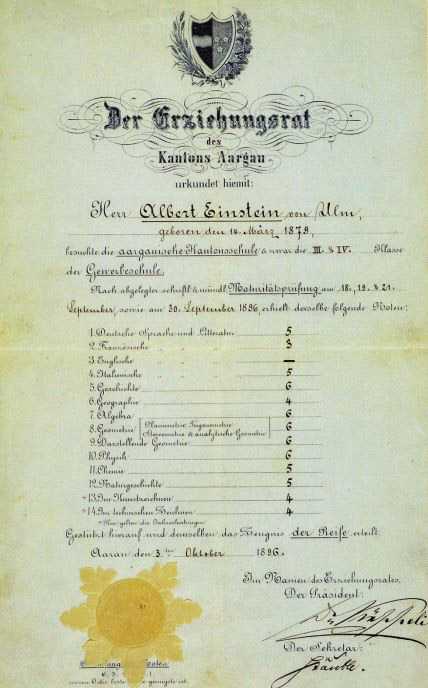 Der Erziehungsrat
des
Kantons Aargau
urkundet hiemit:
Herr Albert Einstein von Ulm,
geboren den 14. März 1879,
besuchte die aargauische Kantonsschule & zwar die III. & IV. Klasse
der Gewerbeschule.
Nach abgelegter schriftl. & mündl. Maturitätsprüfung am 18., 19. & 21.
September, sowie am 30. September 1896, erhielt derselbe folgende Noten:
1. Deutsche Sprache und Litteratur 5
2. Französische 3
3. Englische —
4. Italienische 5
5. Geschichte 6
6. Geographie 4
7. Algebra 6
8. Geometrie Planimetrie, Trigonometrie 6
Stereometrie & analytische Geometrie
9. Darstellende Geometrie 6
10. Physik 6
11. Chemie 5
12. Naturgeschichte 5
*13. Im Kunstzeichnen 4
*14. Im technischen Zeichnen 4
* Hier gelten die Jahresleistungen
Gestützt hierauf wird demselben das Zeugnis der Reife erteilt.
Aarau den 3ten Oktober 1896.
Im Namen des Erziehungsrates,
Der Präsident:
Der Sekretär: